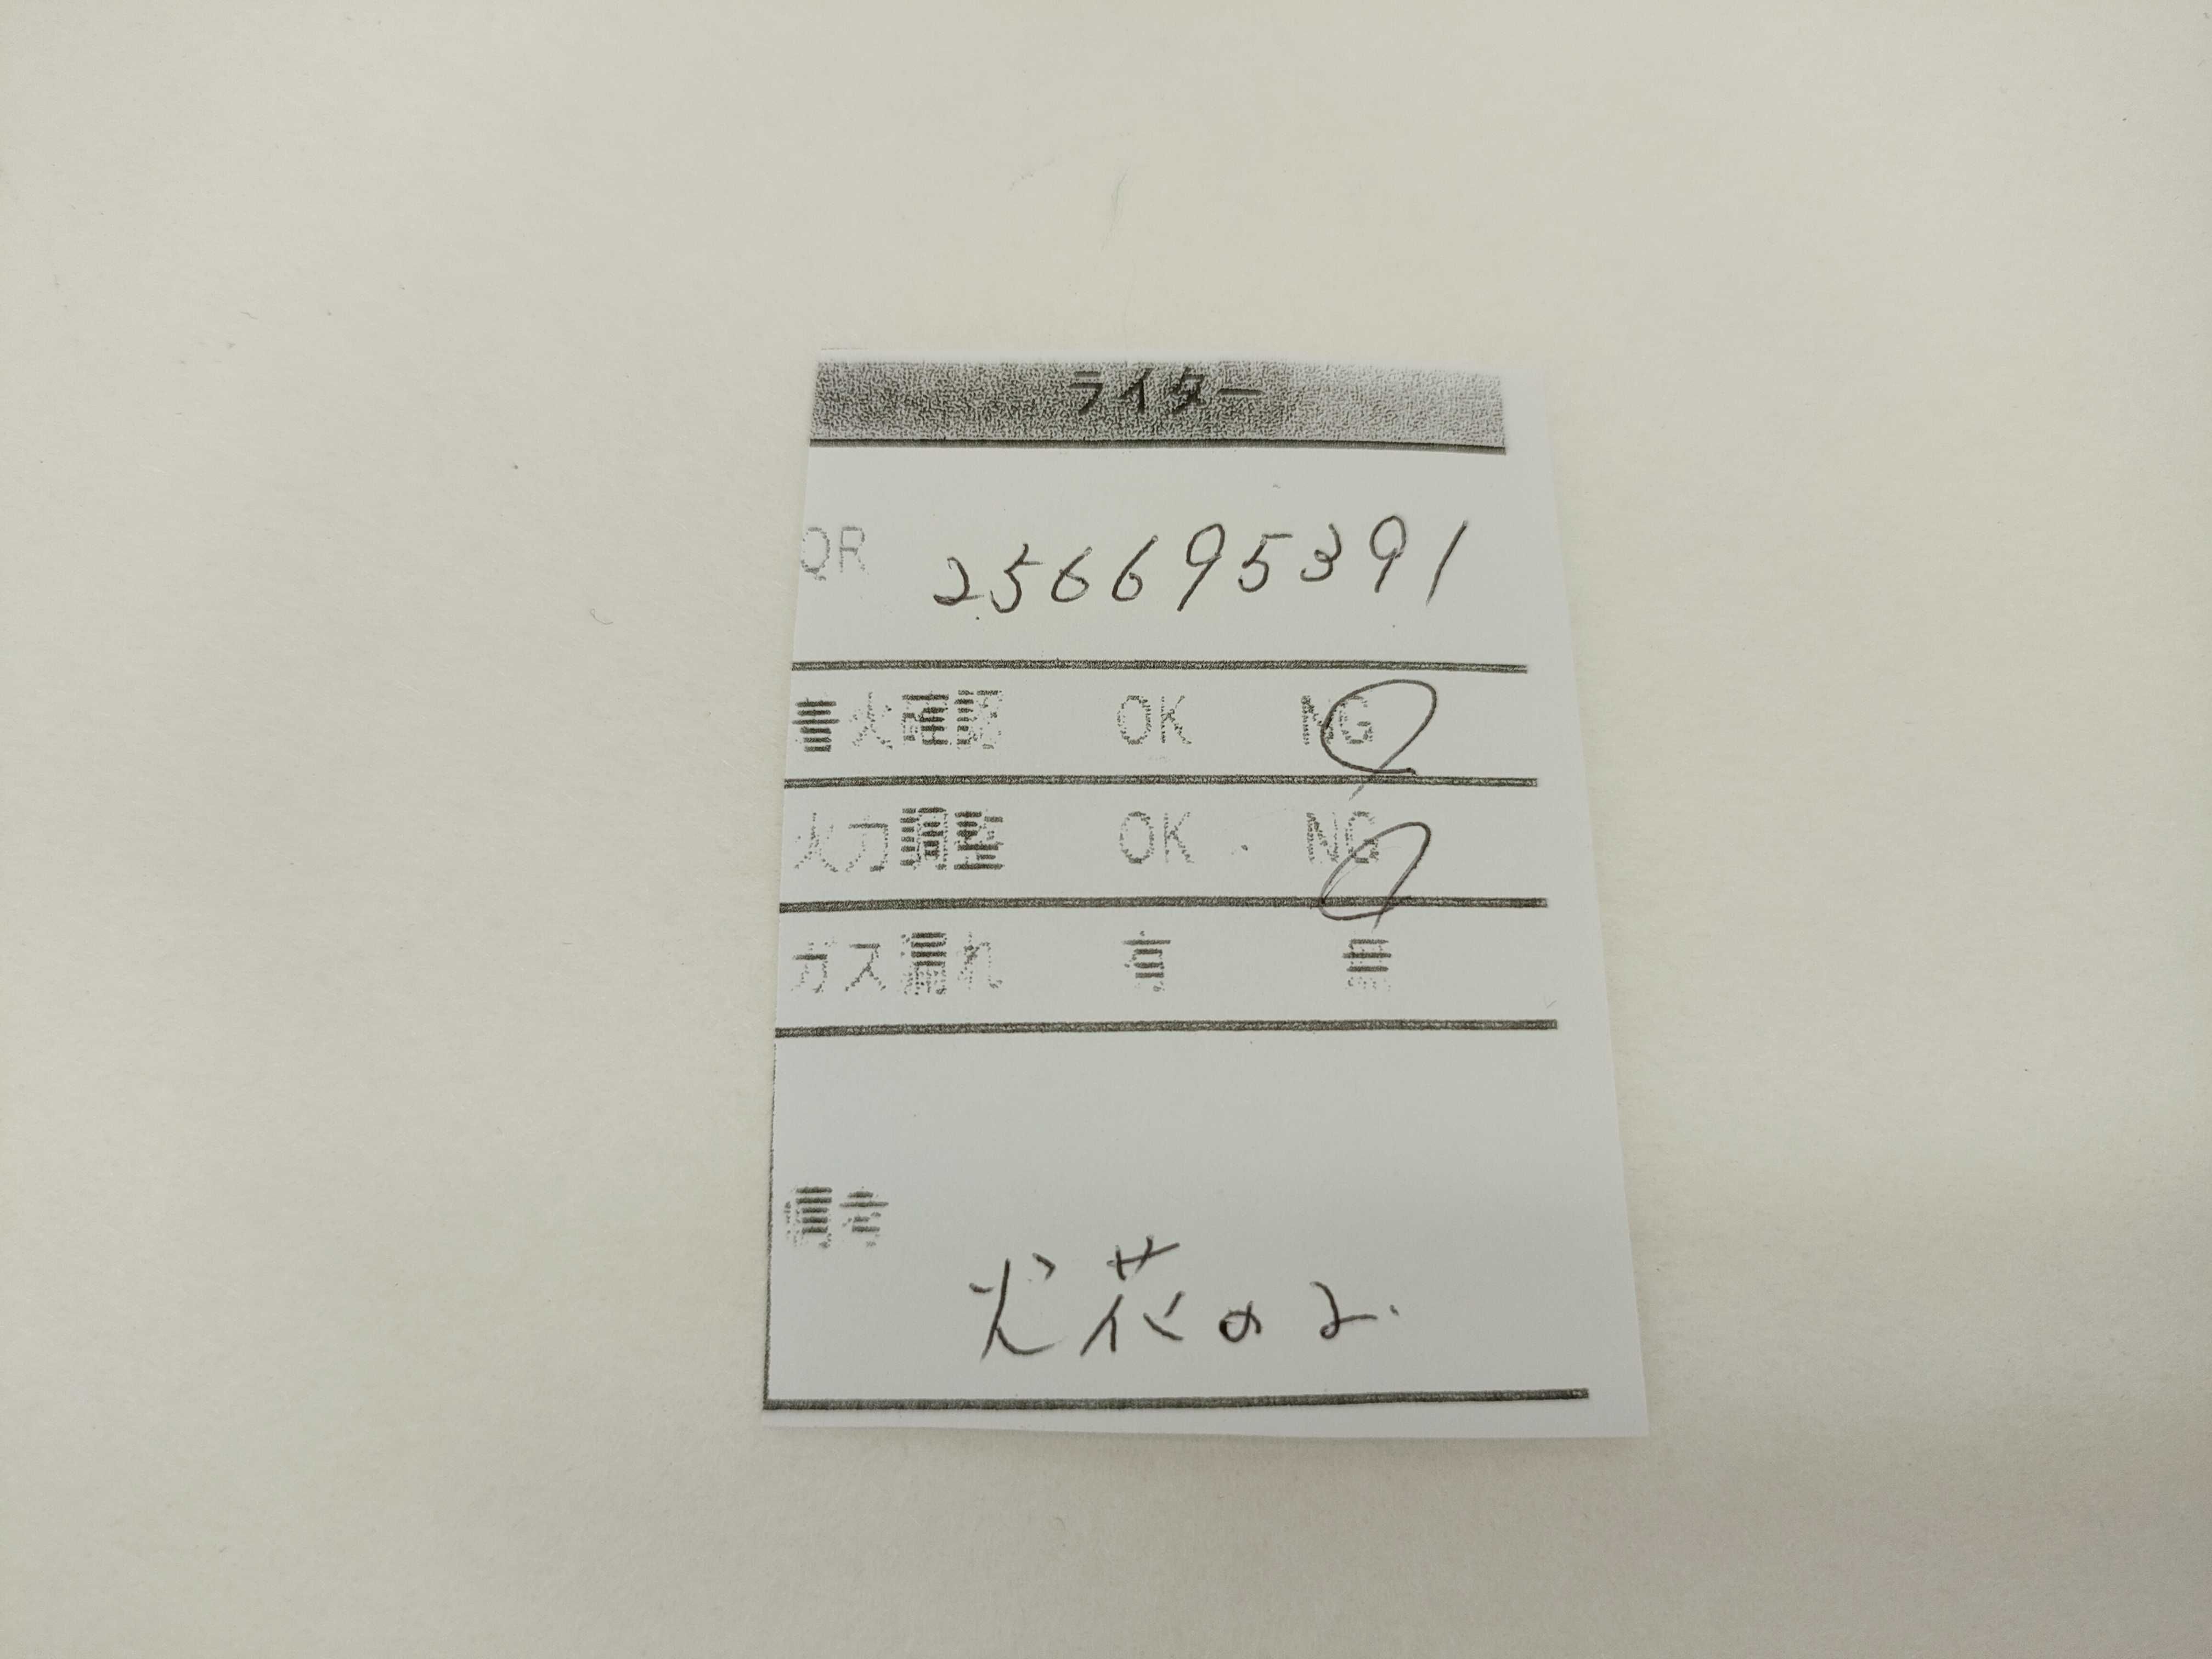 ライター
QR 256695391
着火確認 OK NG
火力調整 OK NG
ガス漏れ 有 無
備考
火花のみ.